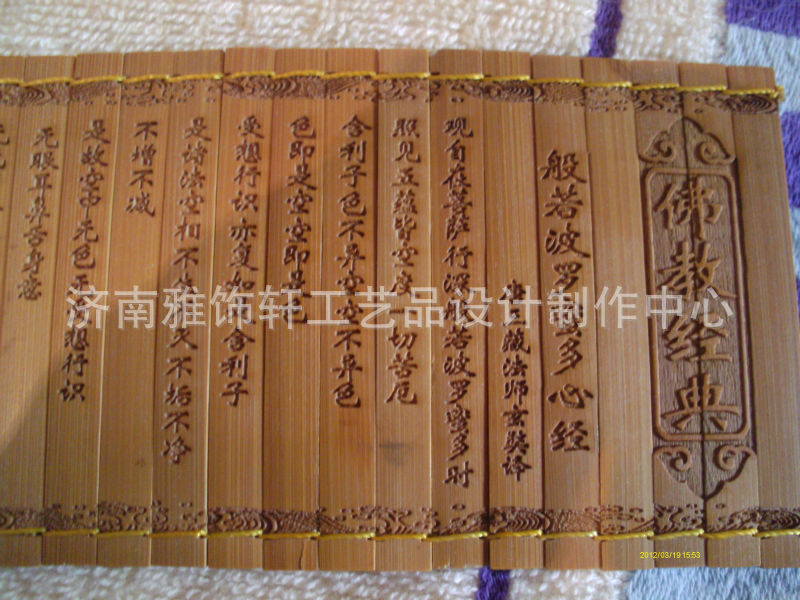 佛教经典
般若波罗蜜多心经
藏法师玄奘译
观自在菩萨行深般若波罗蜜多时
照见五蕴皆空度一切苦厄
舍利子色不异空空不异色
色即是空空即是色
受想行识亦复如是舍利子
是诸法空相不生不灭不垢不净
不增不减
是故空中无色无受想行识
无眼耳鼻舌身意
济南雅饰轩工艺品设计制作中心
2012/03/19 15:53